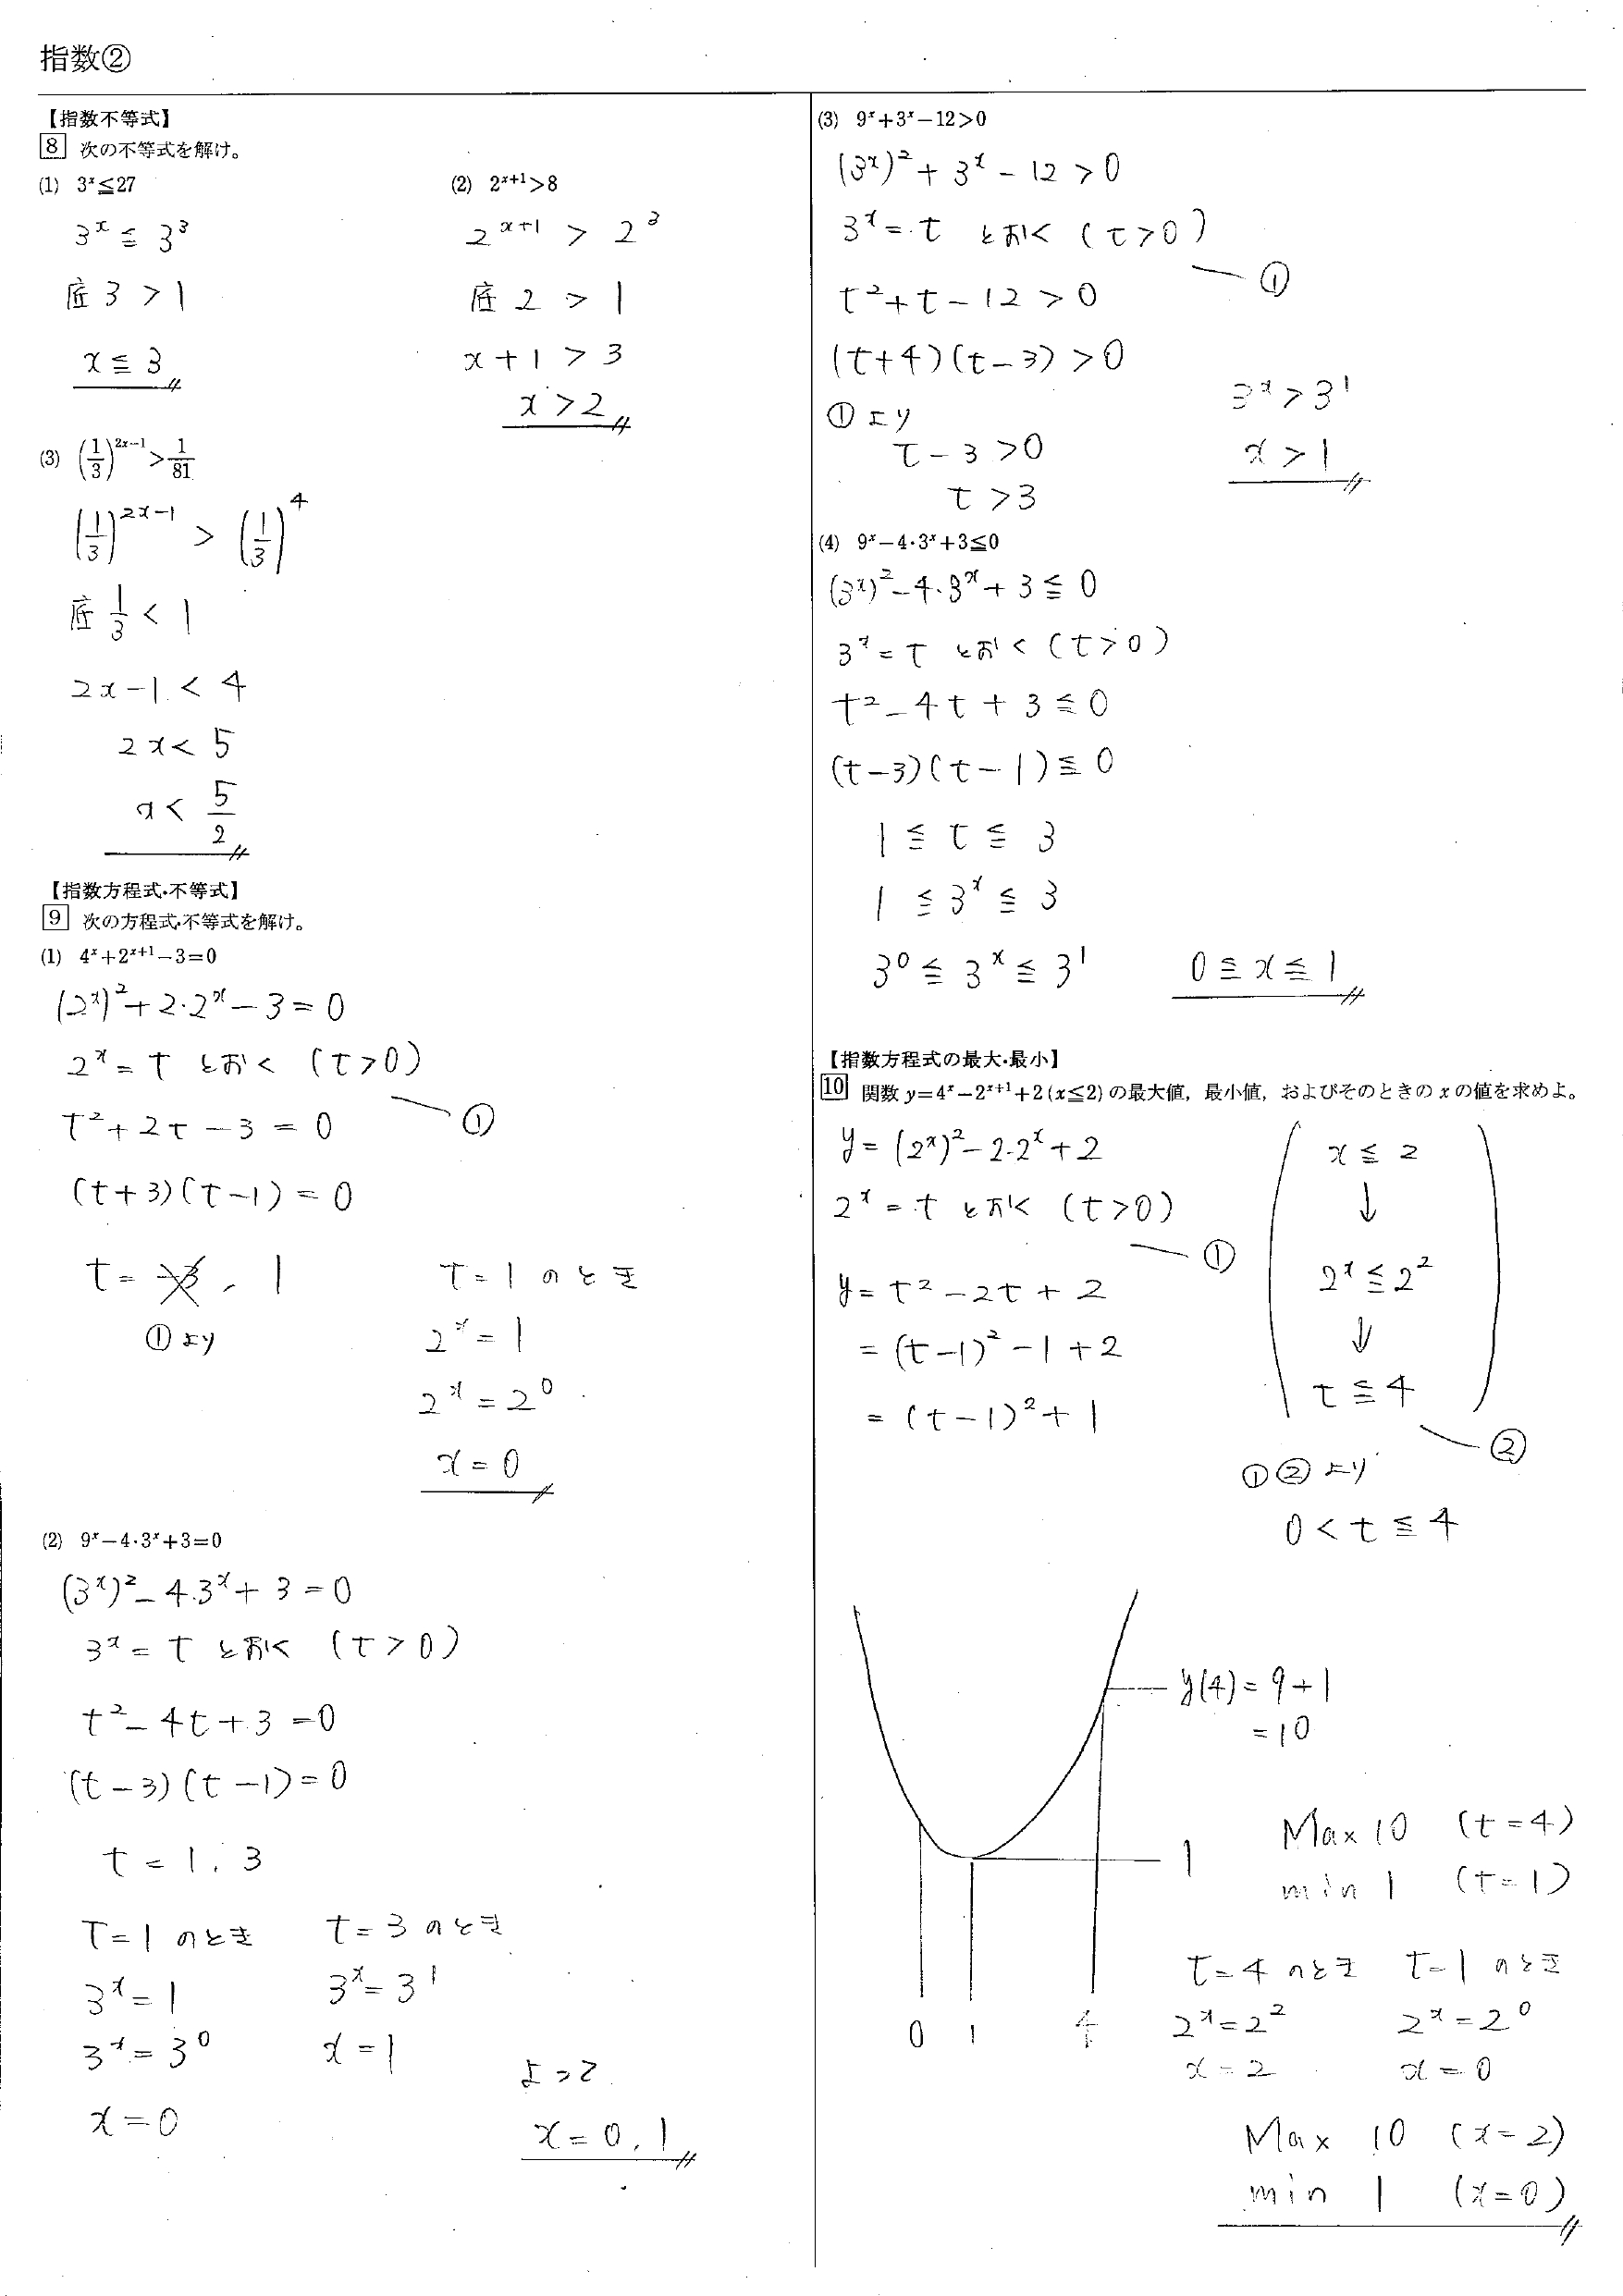 指数②
【指数不等式】
8 次の不等式を解け。
(1) 3^x≦27
3^x ≦ 3^3
底 3 > 1
x ≦ 3
(2) 2^{x+1}>8
2^{x+1} > 2^3
底 2 > 1
x + 1 > 3
x > 2
(3) (1/3)^{2x-1}>1/81
(1/3)^{2x-1} > (1/3)^4
底 1/3 < 1
2x-1 < 4
2x < 5
x < 5/2
【指数方程式・不等式】
9 次の方程式・不等式を解け。
(1) 4^x+2^{x+1}-3=0
(2^x)^2+2・2^x-3=0
2^x = t とおく (t>0)
①
t^2+2t-3=0
(t+3)(t-1)=0
t = -3, 1
①より
t=1 のとき
2^x=1
2^x=2^0
x=0
(2) 9^x-4・3^x+3=0
(3^x)^2-4・3^x+3=0
3^x = t とおく (t>0)
t^2-4t+3=0
(t-3)(t-1)=0
t=1, 3
t=1 のとき
3^x=1
3^x=3^0
x=0
t=3 のとき
3^x=3^1
x=1
よって
x=0, 1
(3) 9^x+3^x-12>0
(3^x)^2+3^x-12>0
3^x=t とおく (t>0)
①
t^2+t-12>0
(t+4)(t-3)>0
①より
t-3>0
t>3
3^x>3^1
x>1
(4) 9^x-4・3^x+3≦0
(3^x)^2-4・3^x+3≦0
3^x=t とおく (t>0)
t^2-4t+3≦0
(t-3)(t-1)≦0
1≦t≦3
1≦3^x≦3
3^0≦3^x≦3^1
0≦x≦1
【指数方程式の最大・最小】
10 関数 y=4^x-2^{x+1}+2(x≦2)の最大値，最小値，およびそのときの x の値を求めよ。
y=(2^x)^2-2・2^x+2
2^x=t とおく (t>0)
①
y=t^2-2t+2
=(t-1)^2-1+2
=(t-1)^2+1
x≦2
↓
2^x≦2^2
↓
t≦4
②
①②より
0<t≦4
y(4)=9+1
=10
1
0 1 4
Max 10 (t=4)
min 1 (t=1)
t=4 のとき
2^x=2^2
x=2
t=1 のとき
2^x=2^0
x=0
Max 10 (x=2)
min 1 (x=0)